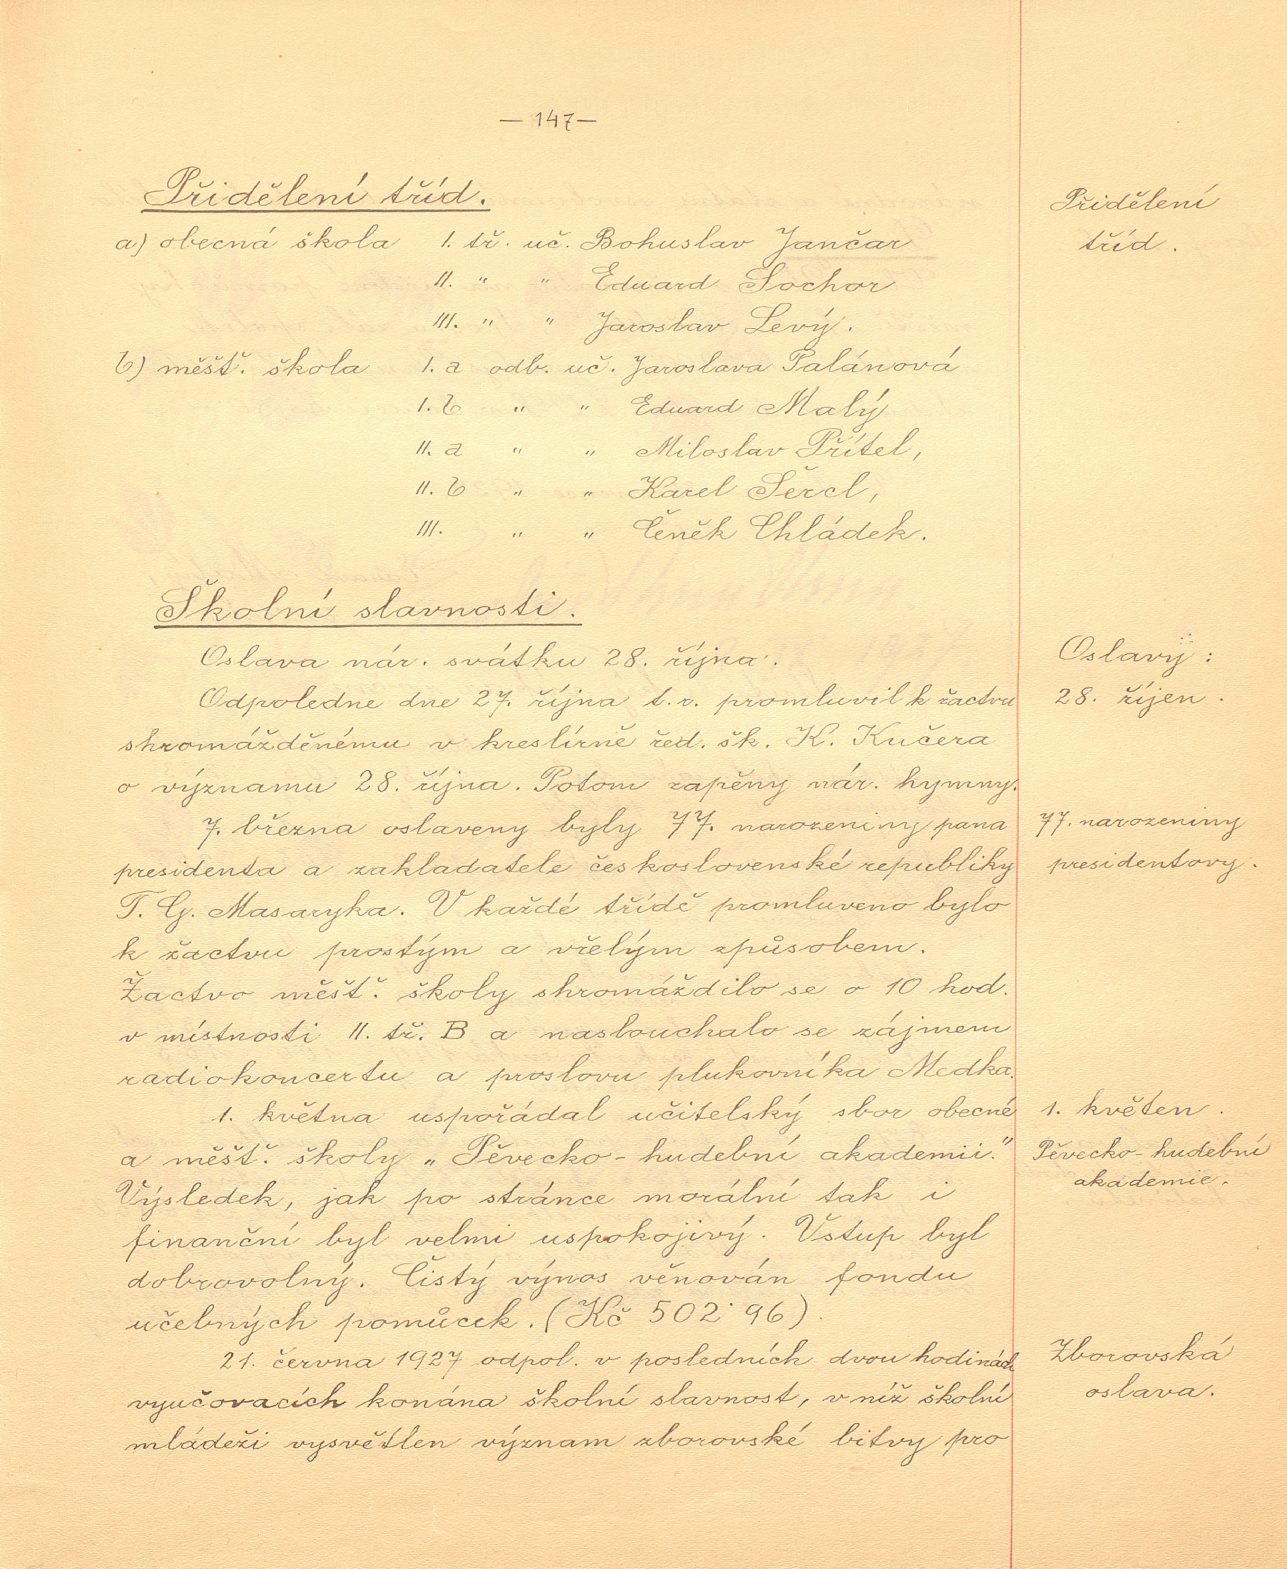 — 147 —
Přidělení tříd.
Přidělení
tříd.
a) obecná škola 1. tř. uč. Bohuslav Jančar
II. " " Eduard Sochor
III. " " Jaroslav Levý.
b) měšť. škola 1. a odb. uč. Jaroslava Palánová
1. b " " Eduard Malý
II. a " " Miloslav Přítel,
II. b " " Karel Šercl,
III. " " Čeněk Chládek.
Školní slavnosti.
Oslava nár. svátku 28. října.
Oslavy:
Odpoledne dne 27. října t. r. promluvil k žactvu
28. říjen.
shromážděnému v kreslírně řed. šk. K. Kučera
o významu 28. října. Potom zapěny nár. hymny.
7. března oslaveny byly 77. narozeniny pana
77. narozeniny
presidenta a zakladatele československé republiky
presidentovy.
T. G. Masaryka. V každé třídě promluveno bylo
k žactvu prostým a vřelým způsobem.
Žactvo měšť. školy shromáždilo se o 10 hod.
v místnosti II. tř. B a naslouchalo se zájmem
radiokoncertu a proslovu plukovníka Medka.
1. května uspořádal učitelský sbor obecné
1. květen.
a měšť. školy „Pěvecko-hudební akademii."
Pěvecko-hudební
akademie.
Výsledek, jak po stránce morální tak i
finanční byl velmi uspokojivý. Vstup byl
dobrovolný. Čistý výnos věnován fondu
učebných pomůcek. (Kč 502˙96).
21. června 1927 odpol. v posledních dvou hodinách
Zborovská
vyučovacích konána školní slavnost, v níž školní
oslava.
mládeži vysvětlen význam zborovské bitvy pro